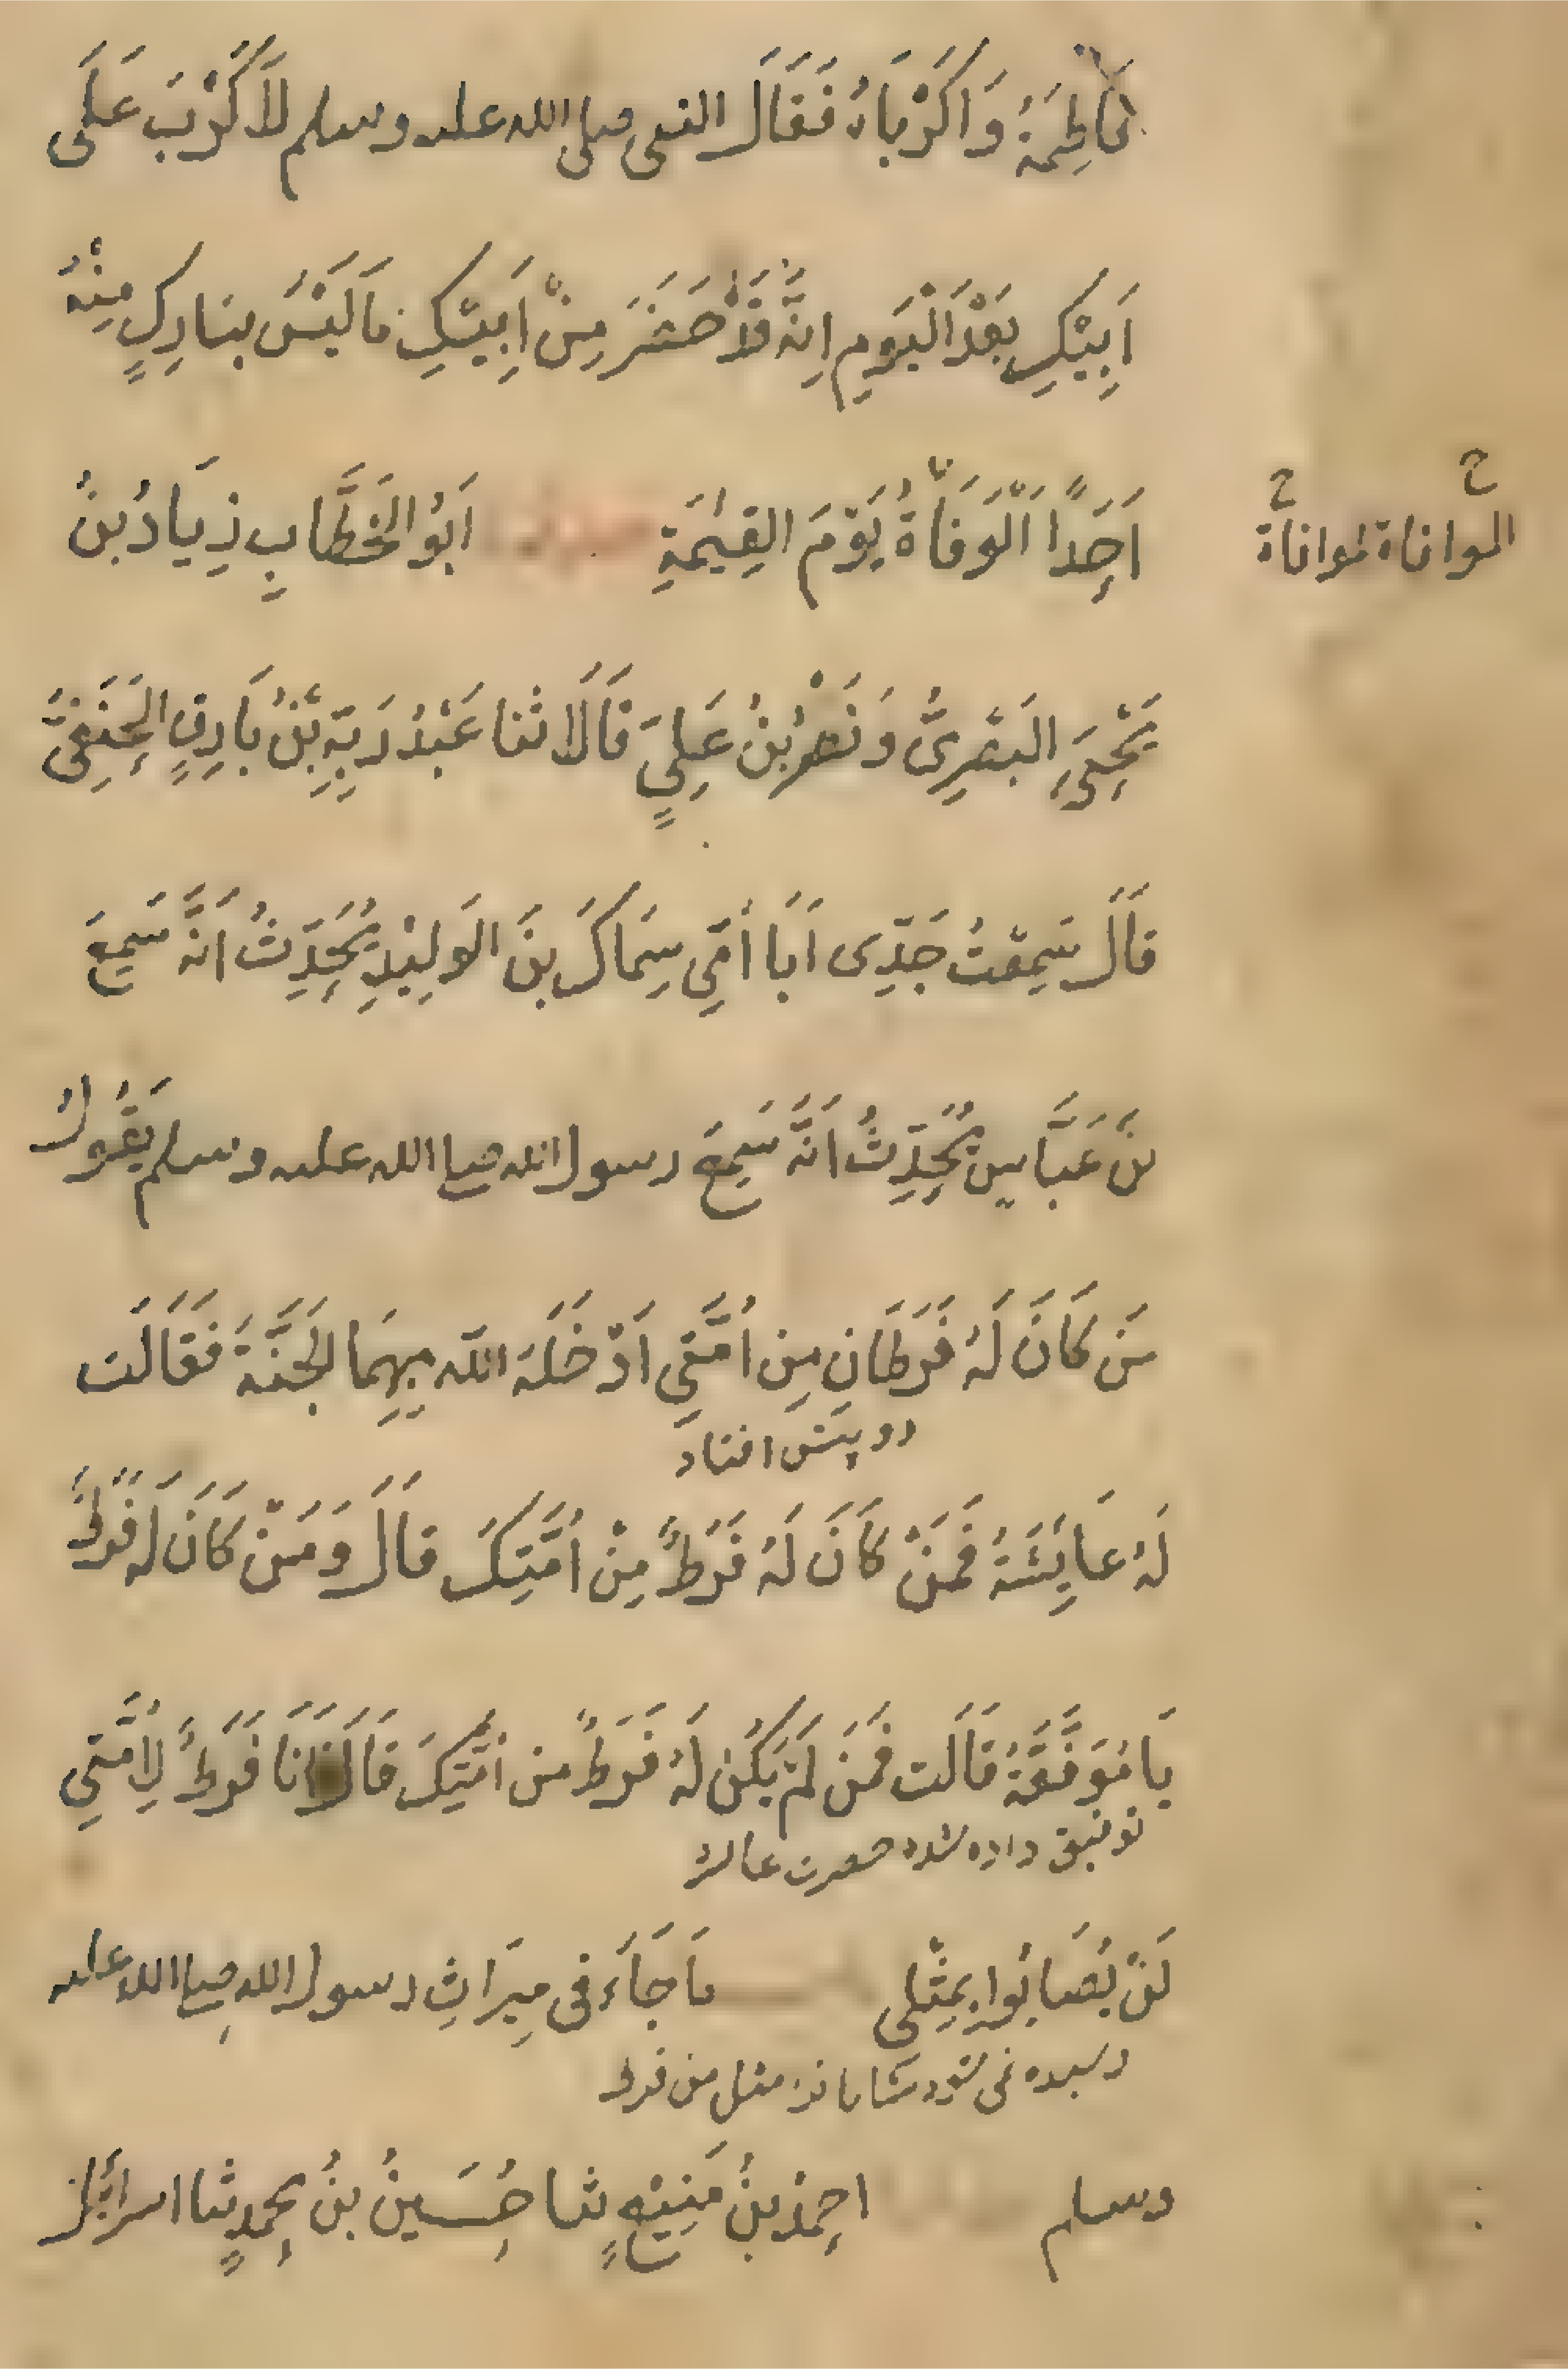 فَاطِمَةُ وَاكَرْبَاهُ فَقَالَ النبى صلى الله عليه وسلم لَا كَرْبَ عَلَى
اَبِيْكِ بَعْدَ الْيَومِ اِنَّهُ قَدْ حَضَرَ مِنْ اَبِيْكِ مَا لَيْسَ بتَارِكٍ مِنْهُ
اَحَدًا اَلْوَفَاةُ يَوْمَ القِيٰمَةِ اَبُو الخَطَّابِ زِيَادُ بنُ
الموافاة لموافاة
يَحْيَى البَصْرِىُّ وَنَصْرُ بنُ عَلِيٍّ قَالَا ثنا عَبْدُ رَبِّهِ بْنُ بَارِقٍ الحَنَفِىُّ
قَالَ سَمِعْتُ جَدِّى اَبَا اُمِّى سِمَاكَ بنَ الوَلِيْدِ يُحَدِّثُ اَنَّهُ سَمِعَ
بنَ عَبَّاسٍ يُحَدِّثُ اَنَّهُ سَمِعَ رسول الله صلى الله عليه وسلم يَقُولُ
مَن كَانَ لَهُ فَرَطَانِ مِن اُمَّتِى اَدْخَلَهُ اللّه بِهِمَا الجَنَّةَ فَقَالَت
دو پیش افتاد
لَهُ عَايِشَةُ فَمَنْ كَانَ لَهُ فَرَطٌ مِنْ اُمَّتِكَ قَالَ وَمَنْ كَانَ لَه فَرَطٌ
يَا مُوَفَّقَةُ قَالَت فَمَنْ لَمْ يَكُنْ لَهُ فَرَطٌ من اُمَّتِكَ قَالَ اَنَا فَرَطٌ لِاُمَّتِى
توفیق داده شده
لَنْ يُصَابُوا بِمِثْلِى مَا جَاءَ فى مِيرَاثِ رسول الله صلى الله عليه
رسیده نمی شود مثل من فرط
وسلم احمدُ بنُ مَنِيْعٍ ثنا حُسَينُ بنُ محمدٍ ثنا اسرائيل